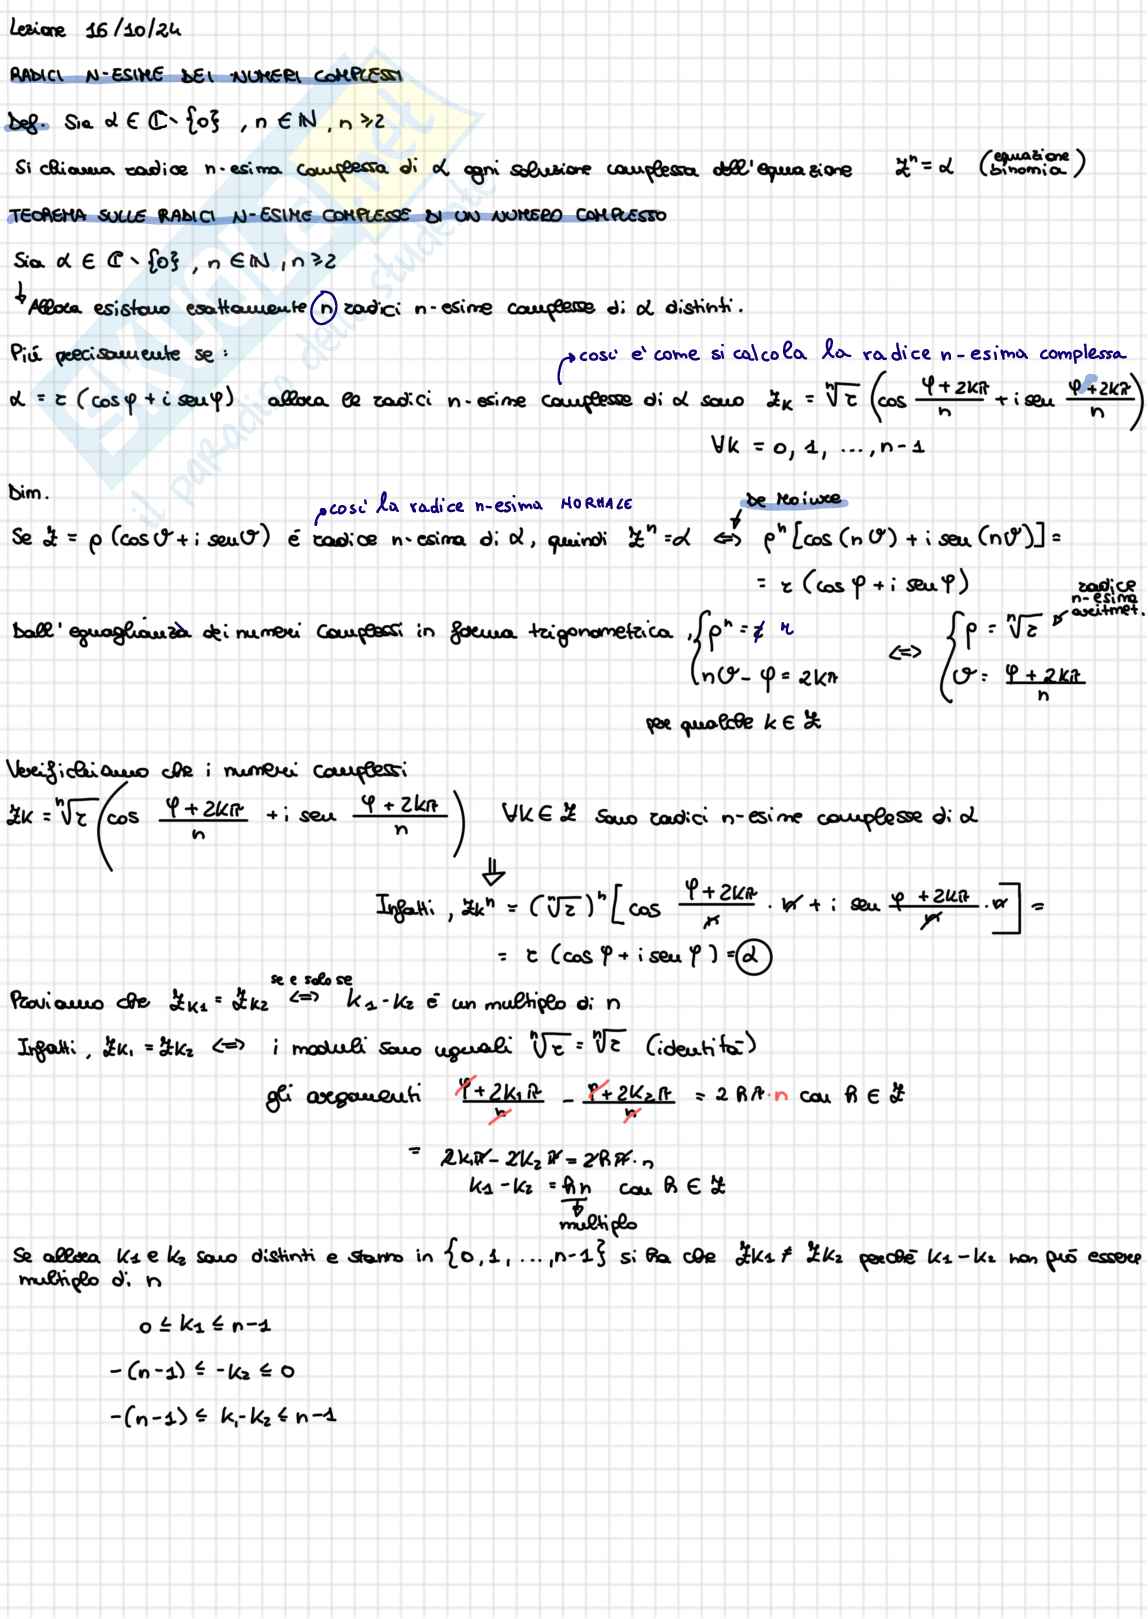 Lezione 16/10/24
RADICI N-ESIME DEI NUMERI COMPLESSI
Def. Sia α ∈ ℂ∖{0}, n ∈ ℕ, n ≥ 2
Si chiama radice n-esima complessa di α ogni soluzione complessa dell'equazione zⁿ = α (equazione binomia)
TEOREMA SULLE RADICI N-ESIME COMPLESSE DI UN NUMERO COMPLESSO
Sia α ∈ ℂ∖{0}, n ∈ ℕ, n ≥ 2
↓ Allora esistono esattamente n radici n-esime complesse di α distinti.
Più precisamente se:
così e' come si calcola la radice n-esima complessa
α = r (cos φ + i sen φ) allora le radici n-esime complesse di α sono z_k = ⁿ√r (cos (φ + 2kπ)/n + i sen (φ + 2kπ)/n)
∀k = 0, 1, ..., n-1
Dim.
così la radice n-esima NORMALE
De Moivre
Se z = ρ (cos ϑ + i sen ϑ) è radice n-esima di α, quindi zⁿ = α ⇔ ρⁿ [cos (nϑ) + i sen (nϑ)] =
= r (cos φ + i sen φ)
radice n-esima aritmet.
Dall'eguaglianza dei numeri complessi in forma trigonometrica, { ρⁿ = r ⇔ { ρ = ⁿ√r
nϑ - φ = 2kπ ϑ = (φ + 2kπ)/n
per qualche k ∈ ℤ
Verifichiamo che i numeri complessi
z_k = ⁿ√r (cos (φ + 2kπ)/n + i sen (φ + 2kπ)/n) ∀k ∈ ℤ sono radici n-esime complesse di α
⇓
Infatti, z_kⁿ = (ⁿ√r)ⁿ [cos (φ + 2kπ)/n · n + i sen (φ + 2kπ)/n · n] =
= r (cos φ + i sen φ) = α
se e solo se
Proviamo che z_k1 = z_k2 ⇔ k1 - k2 è un multiplo di n
Infatti, z_k1 = z_k2 ⇔ i moduli sono uguali ⁿ√r = ⁿ√r (identità)
gli argomenti (φ + 2k1π)/n - (φ + 2k2π)/n = 2hπ · n con h ∈ ℤ
= 2k1π - 2k2π = 2hπ · n
k1 - k2 = hn con h ∈ ℤ
↓
multiplo
Se allora k1 e k2 sono distinti e stanno in {0, 1, ..., n-1} si ha che z_k1 ≠ z_k2 perchè k1 - k2 non può essere
multiplo di n
0 ≤ k1 ≤ n-1
-(n-1) ≤ -k2 ≤ 0
-(n-1) ≤ k1 - k2 ≤ n-1
SKUOLA.net
il paradiso dello studente